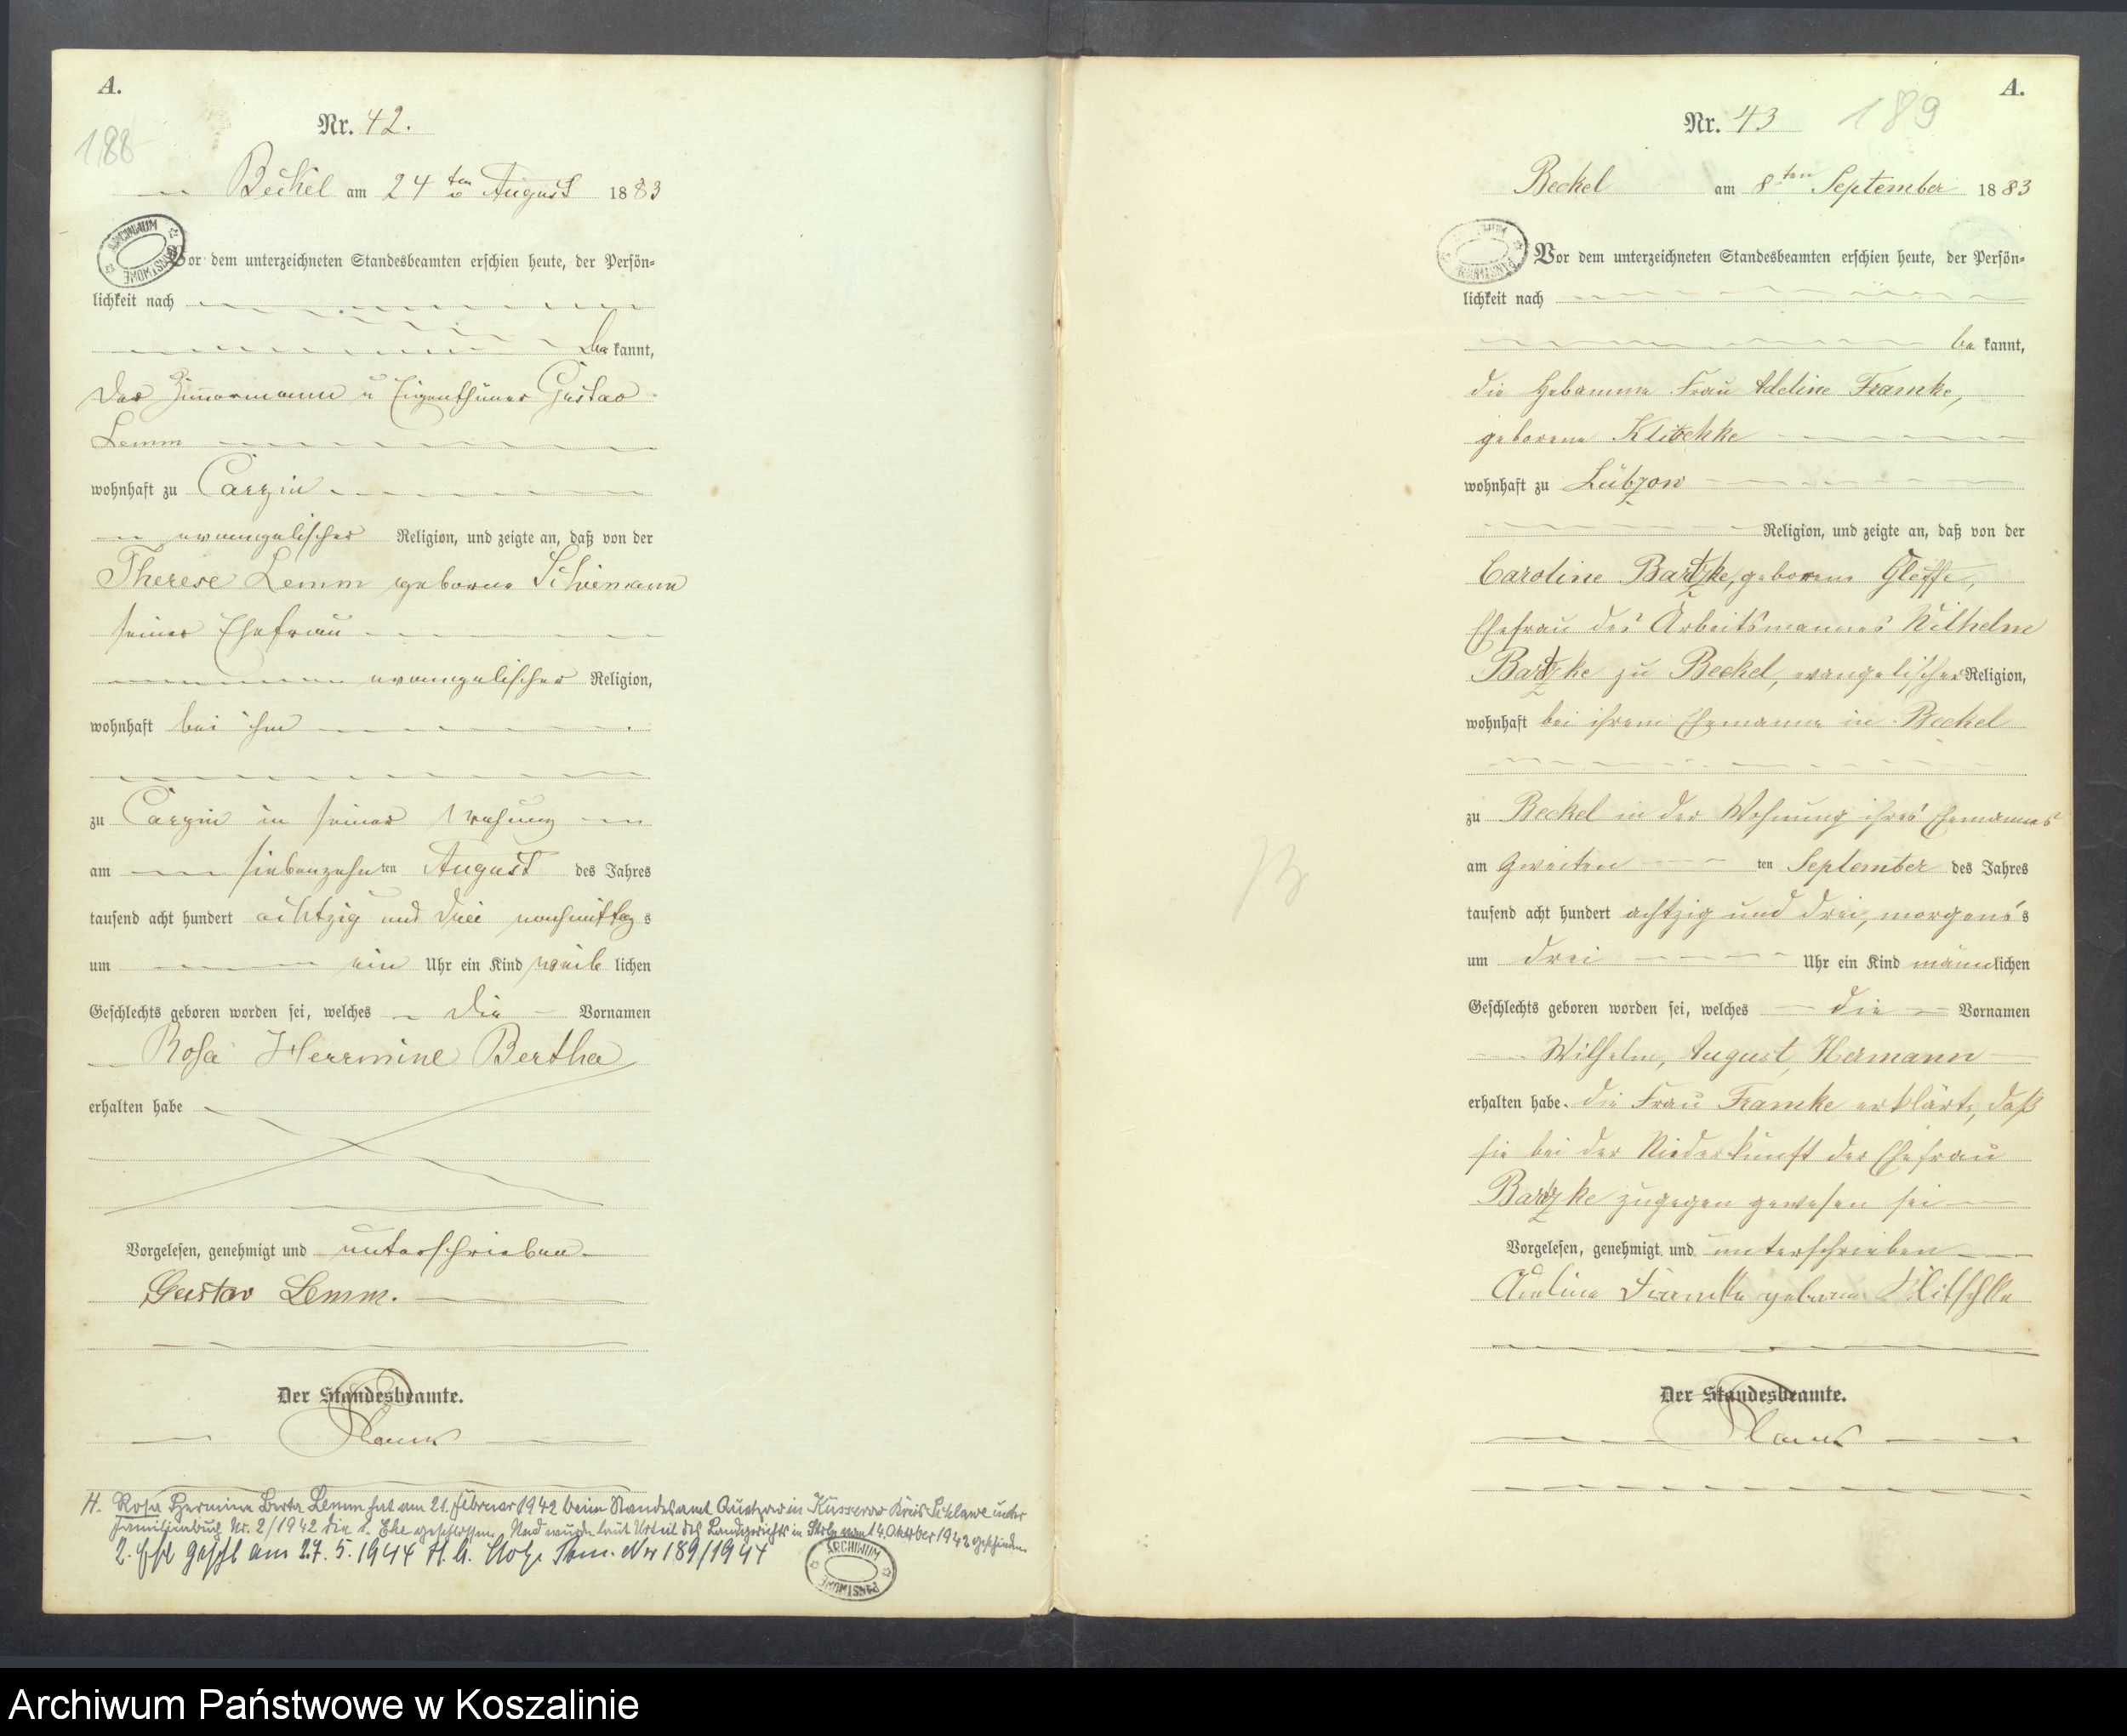 A.
188
Nr. 42.
Beckel am 24ten August 1883
ARCHIWUM PAŃSTWOWE
Vor dem unterzeichneten Standesbeamten erschien heute, der Persön=
lichkeit nach
be kannt,
der Zimmermann u Eigenthümer Gustav
Lemm
wohnhaft zu Carzin
evangelischer Religion, und zeigte an, daß von der
Therese Lemm geborne Schiemann
seiner Ehefrau
evangelischer Religion,
wohnhaft bei ihm
zu Carzin in seiner Wohnung
am siebenzehnten August des Jahres
tausend acht hundert achtzig und drei nachmittags
um ein Uhr ein Kind weiblichen
Geschlechts geboren worden sei, welches die Vornamen
Rosa Herrmine Bertha
erhalten habe
Vorgelesen, genehmigt und unterschrieben
Gustav Lemm.
Der Standesbeamte.
H. Rosa Hermine Berta Lemm hat am 21. Februar 1942 beim Standesamt in Kusserow Kreis Schlawe unter
Familienbuch Nr. 2/1942 die 1. Ehe geschlossen. Und wurde laut Urteil des Landgerichts in Stolp vom 14. Oktober 1942 geschieden.
2. Ehe geschl am 27. 5. 1944 Nr 189/1944
ARCHIWUM PAŃSTWOWE
A.
Nr. 43
189
Beckel am 8ten September 1883
ARCHIWUM PAŃSTWOWE
Vor dem unterzeichneten Standesbeamten erschien heute, der Persön=
lichkeit nach
be kannt,
die Hebamme Frau Adeline Framke,
geborene Klitschke
wohnhaft zu Lübzow
Religion, und zeigte an, daß von der
Caroline Bartzke, geborene Gleffe,
Ehefrau des Arbeitsmannes Wilhelm
Bartzke zu Beckel, evangelischer Religion,
wohnhaft bei ihrem Ehemanne in Beckel
zu Beckel in der Wohnung ihres Ehemannes
am zweiten ten September des Jahres
tausend acht hundert achtzig und drei, morgens s
um drei Uhr ein Kind männlichen
Geschlechts geboren worden sei, welches die Vornamen
Wilhelm, August, Hermann
erhalten habe. Die Frau Framke erklärte, daß
sie bei der Niederkunft der Ehefrau
Bartzke zugegen gewesen sei
Vorgelesen, genehmigt und unterschrieben
Adeline Framke geborne Klitschke
Der Standesbeamte.
Archiwum Państwowe w Koszalinie